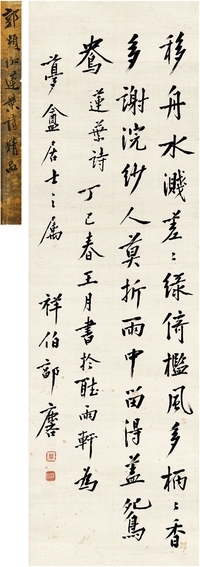 移舟水濺差〻綠倚檻風多柄〻香
多謝浣紗人莫折雨中留得蓋鴛
鴦 蓮葉詩 丁巳春王月書於聽雨軒為
夢盦居士之屬
祥伯郭麐
郭頻伽蓮葉詩精品